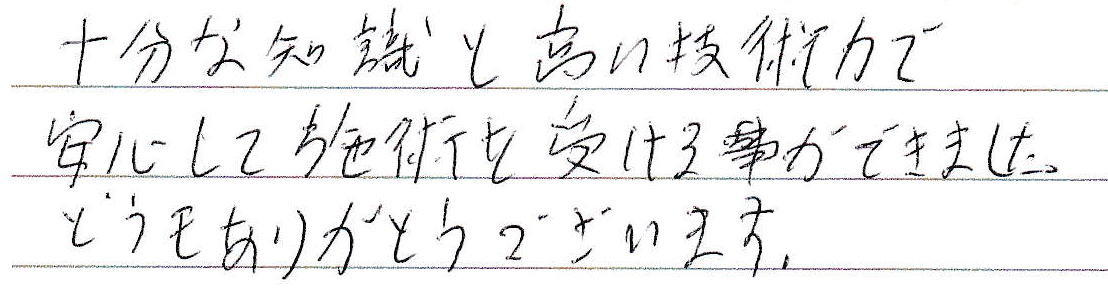 十分な知識と高い技術力で
安心して施術を受ける事ができました。
どうもありがとうございます。